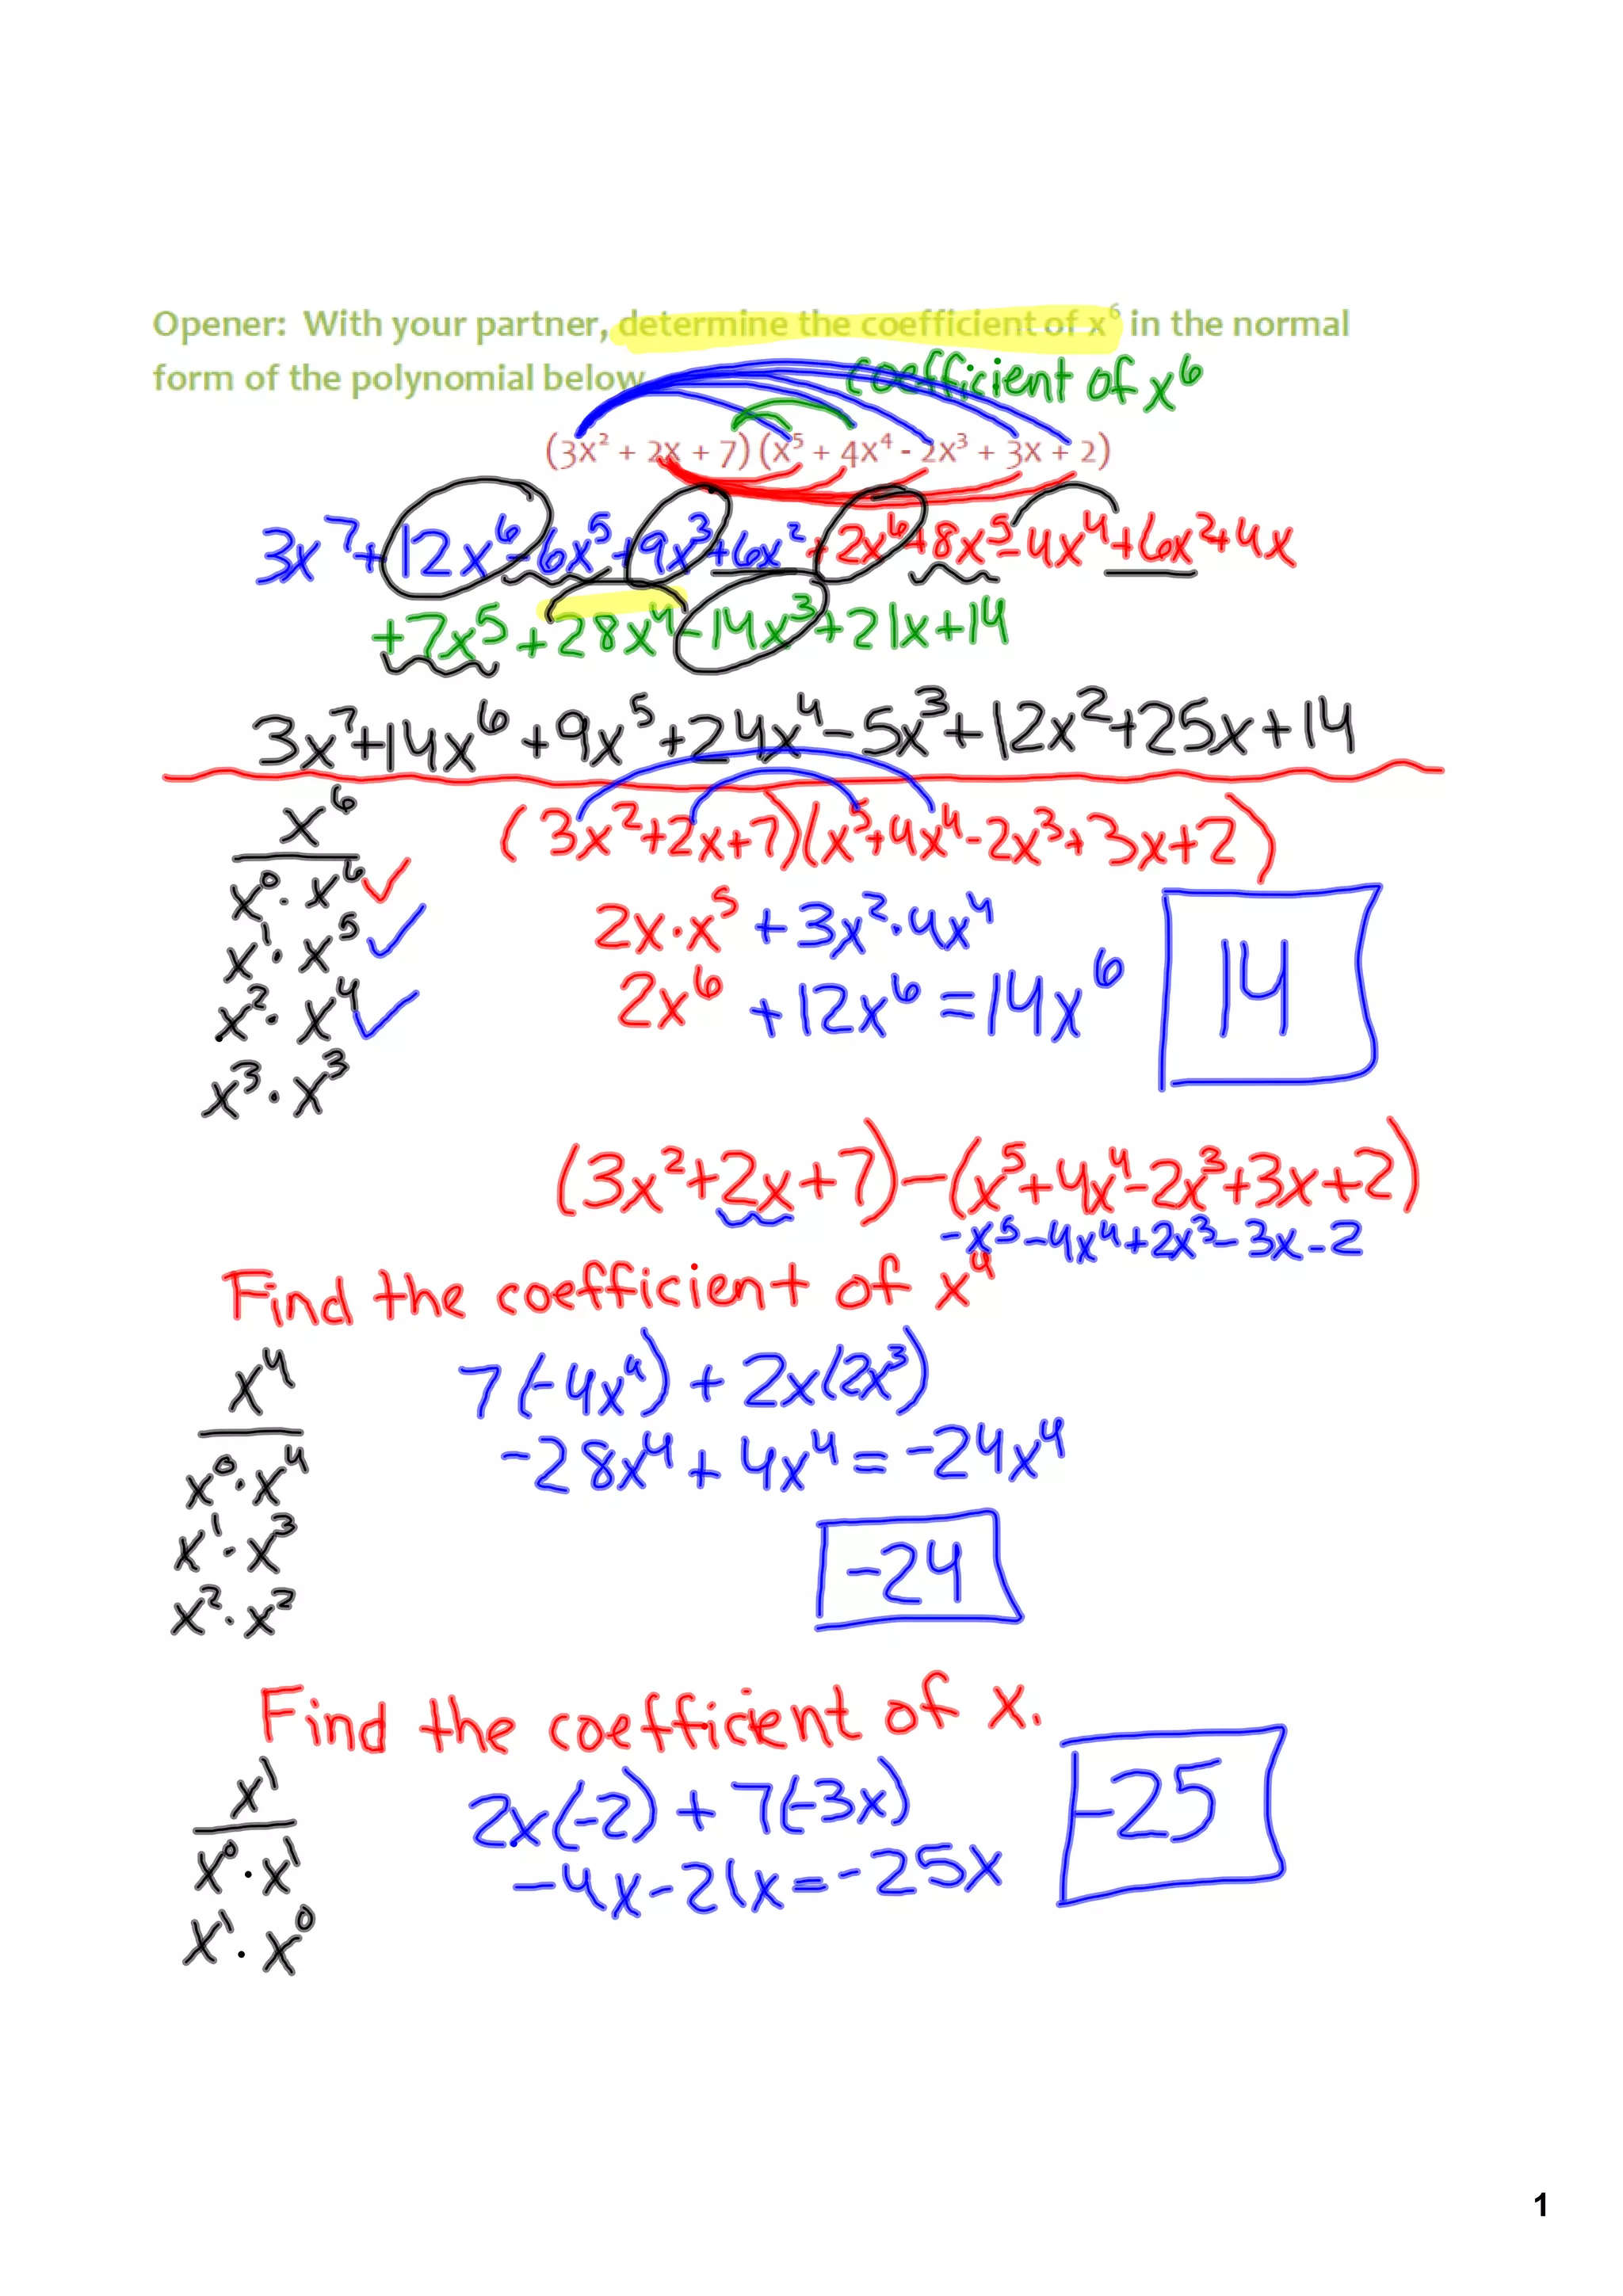 Opener: With your partner, determine the coefficient of x⁶ in the normal
form of the polynomial below.
coefficient of x⁶
(3x² + 2x + 7)(x⁵ + 4x⁴ - 2x³ + 3x + 2)
3x⁷+12x⁶-6x⁵+9x³+6x²+2x⁶+8x⁵-4x⁴+6x²+4x
+7x⁵+28x⁴-14x³+21x+14
3x⁷+14x⁶+9x⁵+24x⁴-5x³+12x²+25x+14
x⁶
(3x²+2x+7)(x⁵+4x⁴-2x³+3x+2)
x⁰·x⁶✓
x¹·x⁵✓
2x·x⁵+3x²·4x⁴
x²·x⁴✓
2x⁶+12x⁶=14x⁶
14
x³·x³
(3x²+2x+7)-(x⁵+4x⁴-2x³+3x+2)
-x⁵-4x⁴+2x³-3x-2
Find the coefficient of x⁴
x⁴
7(-4x⁴)+2x(2x³)
x⁰·x⁴
-28x⁴+4x⁴=-24x⁴
x¹·x³
-24
x²·x²
Find the coefficient of x.
x¹
2x(-2)+7(-3x)
-25
x⁰·x¹
-4x-21x=-25x
x¹·x⁰
1